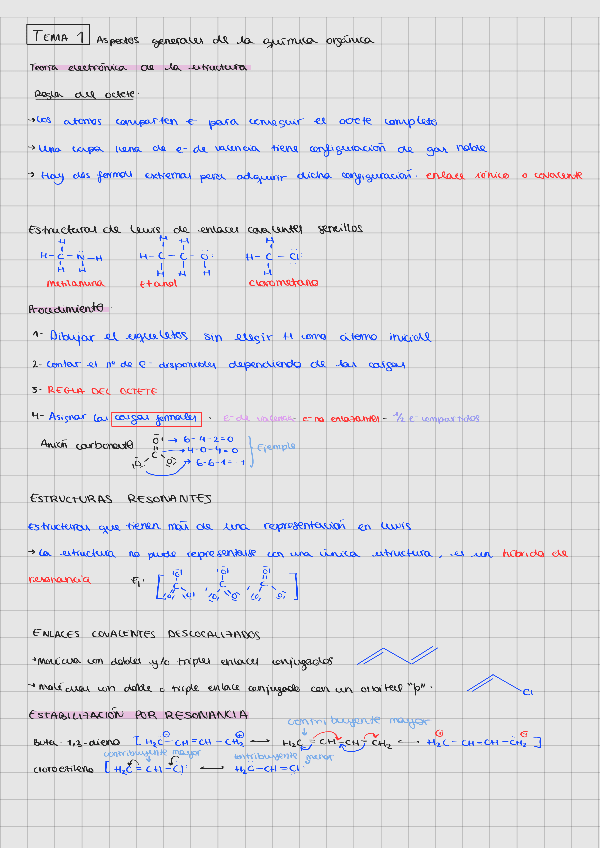 TEMA 1 Aspectos generales de la química orgánica
Teoría electrónica de la estructura
Regla del octete.
→ Los átomos comparten e⁻ para conseguir el octete completo
→ Una capa llena de e⁻ de valencia tiene configuración de gas noble
→ Hay dos formas extremas para adquirir dicha configuración: enlace iónico o covalente
Estructuras de Lewis de enlaces covalentes sencillos
H H H H
H-C-N-H H-C-C-O: H-C-Cl:
H H H H H H
metilamina Etanol clorometano
Procedimiento:
1- Dibujar el esqueletos sin elegir H como átomo inicial
2- contar el nº de e⁻ disponibles dependiendo de las cargas
3- REGLA DEL OCTETE
4- Asignar las cargas formales. e⁻ de valencia - e⁻ no enlazantes - 1/2 e⁻ compartidos
Anión carbonato :O: → 6-4-2=0
C → 4-0-4=0 Ejemplo
:O: :O: → 6-6-1=-1
ESTRUCTURAS RESONANTES
Estructuras que tienen más de una representación en Lewis
→ La estructura no puede representarse con una única estructura, es un híbrido de
resonancia Ej.
ENLACES COVALENTES DESLOCALIZADOS
→ molécula con dobles y/o triples enlaces conjugados
→ moléculas un doble o triple enlace conjugado con un orbital "p".
Cl
ESTABILIZACIÓN POR RESONANCIA
contribuyente mayor
Buta-1,3-dieno [H₂C-CH=CH-CH₂ ⟷ H₂C=CH-CH=CH₂ ⟷ H₂C-CH=CH-CH₂]
contribuyente mayor contribuyente menor
cloroetileno [H₂C=CH-Cl: ⟷ H₂C-CH=Cl: